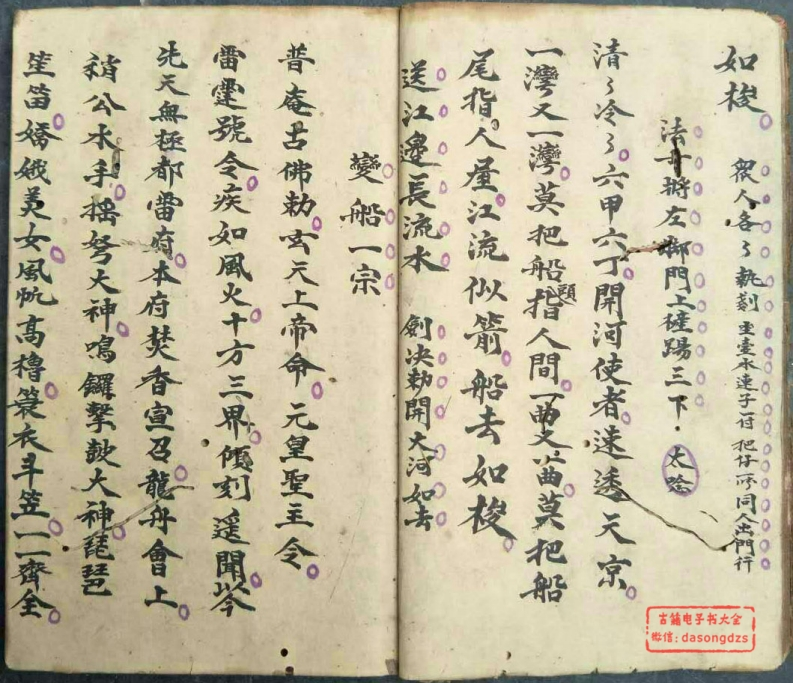 如梭 眾人各〻執剳 圣壹水連子一付 把仔一所同人出門行
法舟將左脚門上碰踢三下 太唸
清〻冷〻六甲六丁開河使者速透天京
一灣又一灣莫把船頭指人間一曲又一曲莫把船
尾指人 江流似箭船去如梭
送江邊長流水 劍決勅開大河如去
變船一宗
普庵古佛勅玄天上帝命元皇聖主令
雷霆號令疾如風火十方三界傾刻遥聞以今
先天無極都雷府本府焚香宣召龍舟會上
稍公水手摇弩大神鳴鑼擊鼓大神琵琶
笙笛嬌娥美女風帆高櫓簑衣斗笠一一齊全
古籍电子书大全
微信: dasongdzs